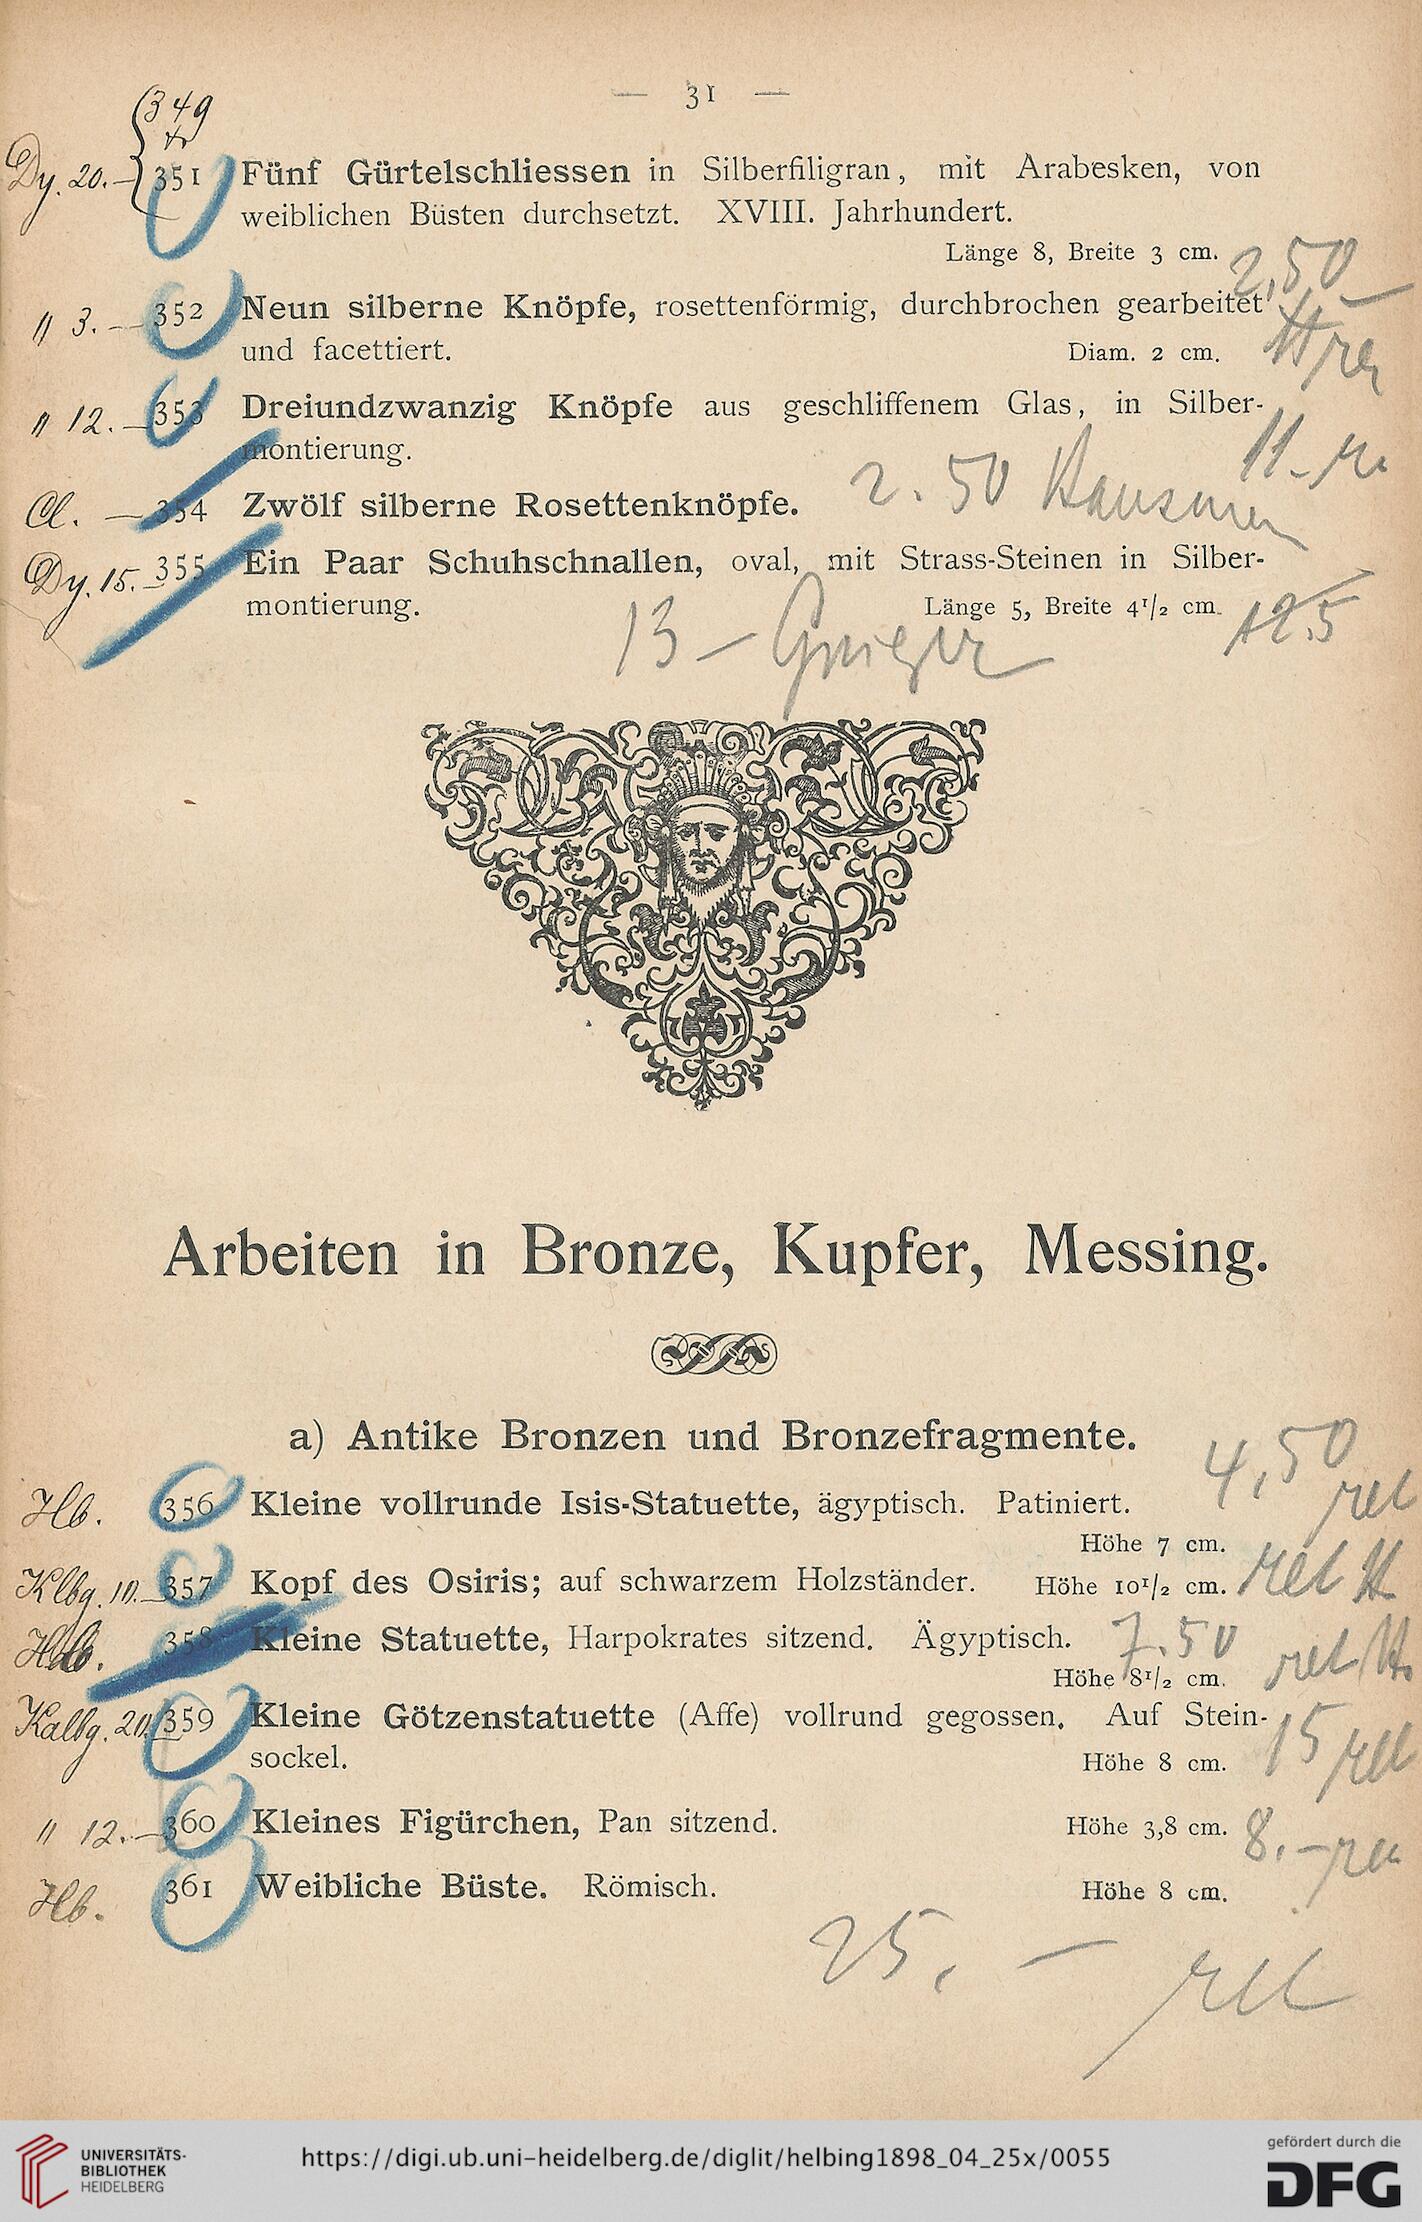 — 31 —
349
Dy. 20. — 351 Fünf Gürtelschliessen in Silberfiligran, mit Arabesken, von
weiblichen Büsten durchsetzt. XVIII. Jahrhundert.
Länge 8, Breite 3 cm. 2,50
" 3. — 352 Neun silberne Knöpfe, rosettenförmig, durchbrochen gearbeitet
und facettiert. Diam. 2 cm.
" 12. — 353 Dreiundzwanzig Knöpfe aus geschliffenem Glas, in Silber-
montierung. 11.-
Cl. — 354 Zwölf silberne Rosettenknöpfe. 2.50
Dy. 15. — 355 Ein Paar Schuhschnallen, oval, mit Strass-Steinen in Silber-
montierung. Länge 5, Breite 4¹/₂ cm. 12.5
13 —
Arbeiten in Bronze, Kupfer, Messing.
a) Antike Bronzen und Bronzefragmente.
4,50
Hb. 356 Kleine vollrunde Isis-Statuette, ägyptisch. Patiniert.
Höhe 7 cm.
Klbg. 10. — 357 Kopf des Osiris; auf schwarzem Holzständer. Höhe 10¹/₂ cm.
358 Kleine Statuette, Harpokrates sitzend. Ägyptisch. 7.50
Höhe 8¹/₂ cm.
Kalbg. 20. 359 Kleine Götzenstatuette (Affe) vollrund gegossen. Auf Stein-
sockel. Höhe 8 cm. 15
" 12. — 360 Kleines Figürchen, Pan sitzend. Höhe 3,8 cm. 8. —
Hb. 361 Weibliche Büste. Römisch. Höhe 8 cm.
25. —
UNIVERSITÄTS-
BIBLIOTHEK
HEIDELBERG
https://digi.ub.uni-heidelberg.de/diglit/helbing1898_04_25x/0055
gefördert durch die
DFG